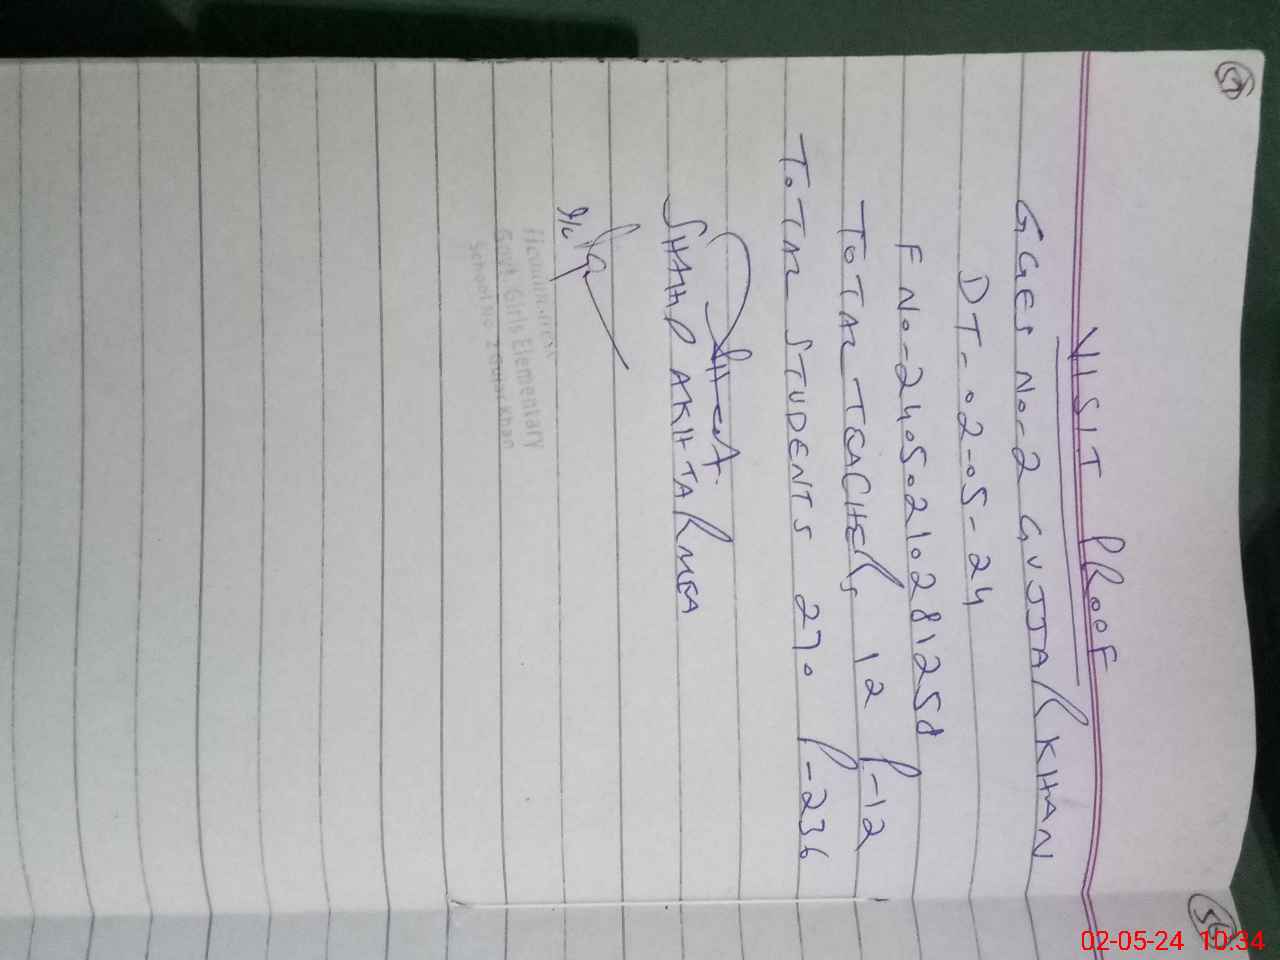 VISIT PROOF
GGES No-2 GUJJAR KHAN
DT-02-05-24
F No-2405021028125d
TOTAL TEACHERS 12 P-12
TOTAL STUDENTS 270 P-236
SHAHID AKHTAR MEA
I/c
Govt. Girls Elementary
School No. 2 Gujar Khan
02-05-24 10:34